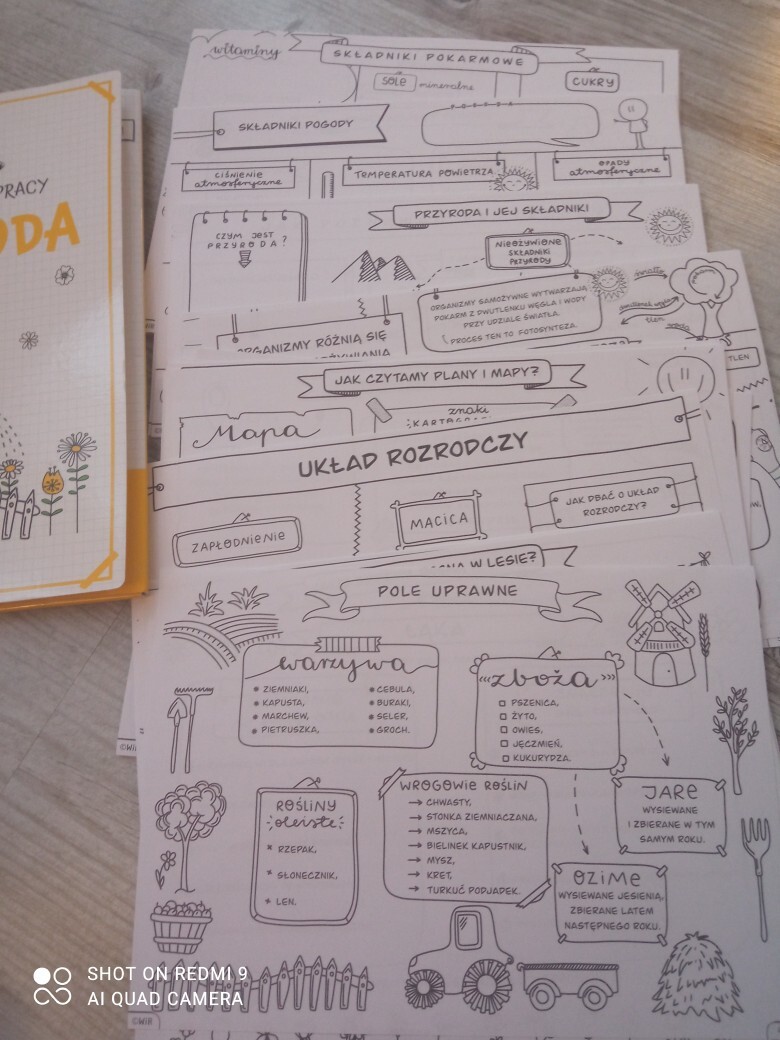 PRACY
witaminy
SKŁADNIKI POKARMOWE
SOLE mineralne
CUKRY
SKŁADNIKI POGODY
CIŚNIENIE
atmosferyczne
TEMPERATURA POWIETRZA
OPADY
atmosferyczne
PRZYRODA I JEJ SKŁADNIKI
CZYM JEST
PRZYRODA?
NIEOŻYWIONE
SKŁADNIKI
PRZYRODY
ORGANIZMY SAMOŻYWNE WYTWARZAJĄ
POKARM Z DWUTLENKU WĘGLA I WODY
PRZY UDZIALE ŚWIATŁA.
PROCES TEN TO FOTOSYNTEZA.
światło
tlen
ORGANIZMY RÓŻNIĄ SIĘ
TLEN
JAK CZYTAMY PLANY I MAPY?
Mapa
znaki
UKŁAD ROZRODCZY
ZAPŁODNIENIE
MACICA
JAK DBAĆ O UKŁAD
ROZRODCZY?
W LESIE?
POLE UPRAWNE
warzywa
ZIEMNIAKI,
KAPUSTA,
MARCHEW,
PIETRUSZKA,
CEBULA,
BURAKI,
SELER,
GROCH.
zboża
PSZENICA,
ŻYTO,
OWIES,
JĘCZMIEŃ,
KUKURYDZA.
ROŚLINY
oleiste
RZEPAK,
SŁONECZNIK,
LEN.
WROGOWIE ROŚLIN
CHWASTY,
STONKA ZIEMNIACZANA,
MSZYCA,
BIELINEK KAPUSTNIK,
MYSZ,
KRET,
TURKUĆ PODJADEK.
JARE
WYSIEWANE
I ZBIERANE W TYM
SAMYM ROKU.
OZIME
WYSIEWANE JESIENIĄ,
ZBIERANE LATEM
NASTĘPNEGO ROKU.
SHOT ON REDMI 9
AI QUAD CAMERA